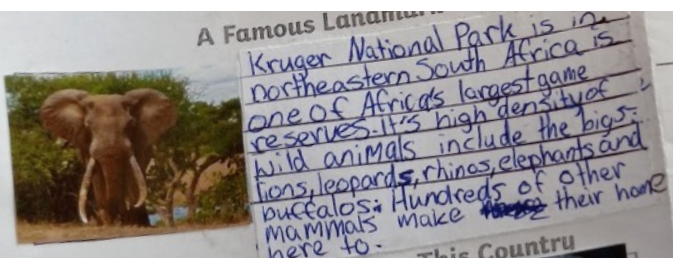 A Famous Landmark
Kruger National Park is in
northeastern South Africa is
one of Africa's largest game
reserves. It's high density of
wild animals include the big 5:
lions, leopards, rhinos, elephants and
buffalos: Hundreds of other
mammals make their home
here to.
This Country